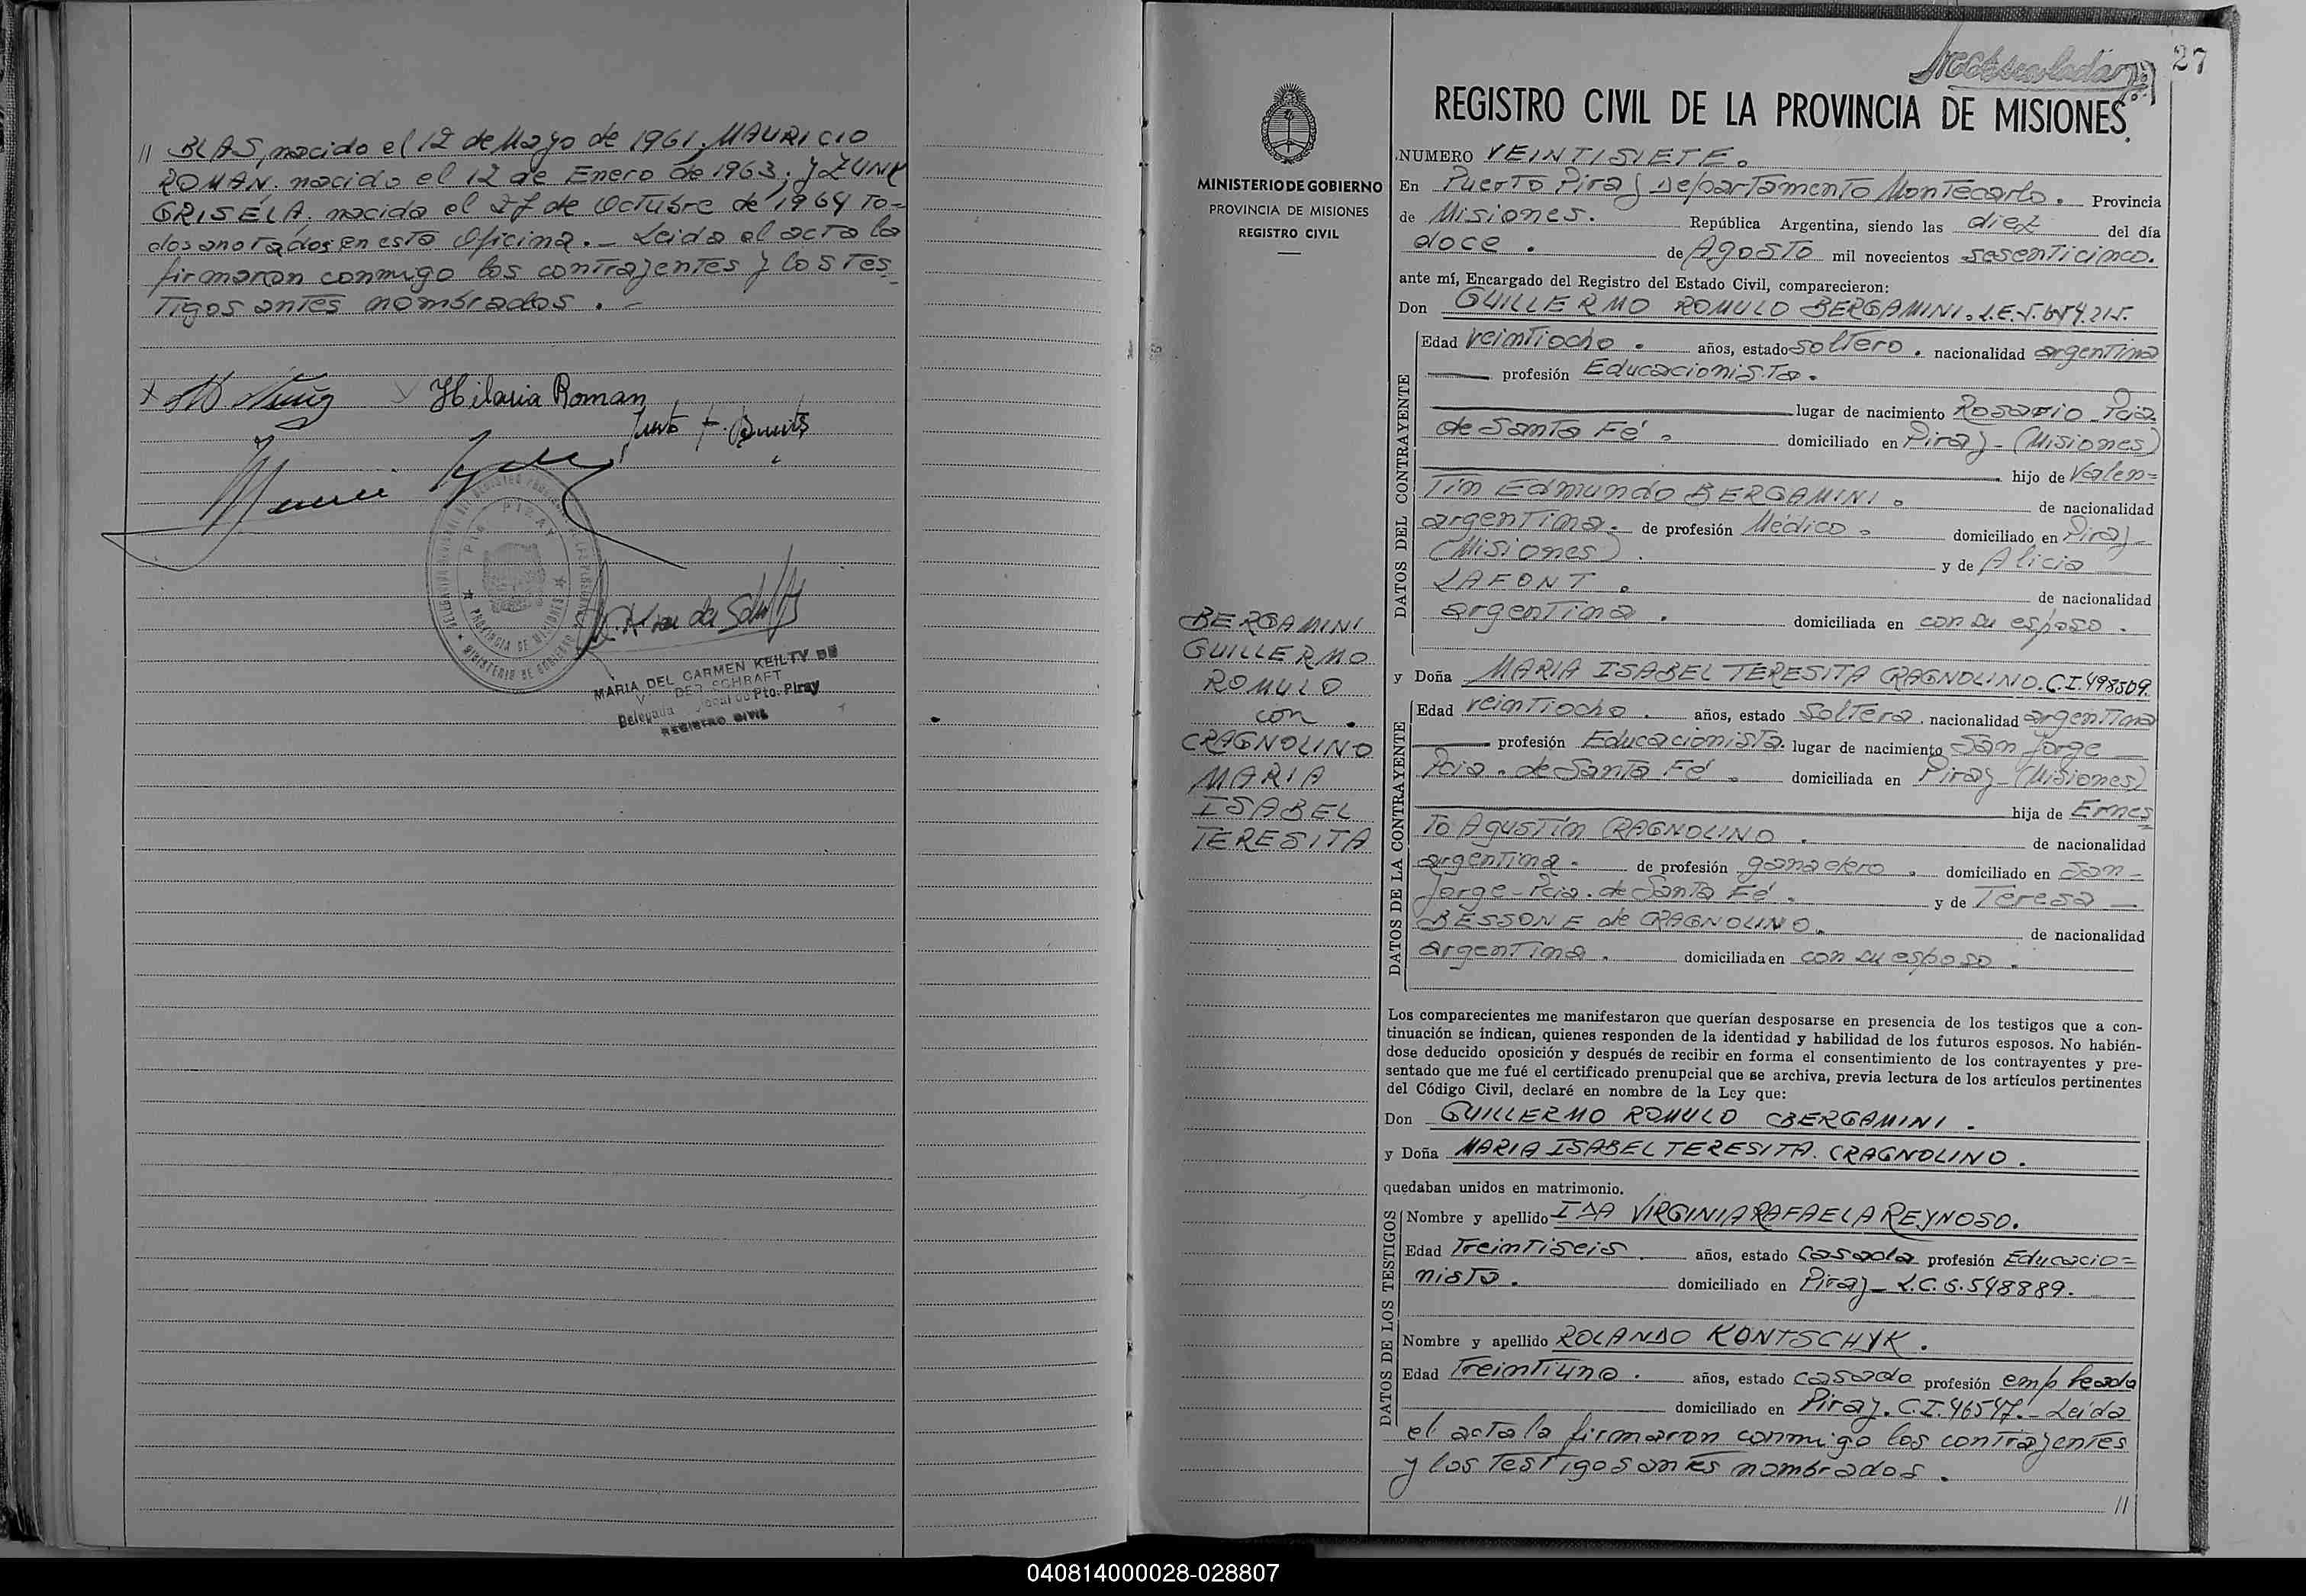 // BLAS, nacido el 12 de Mayo de 1961. MAURICIO
ROMAN. nacido el 12 de Enero de 1963. y ZUNI
GRISELA. nacida el 27 de Octubre de 1964 To=
dos anotados en esta Oficina. - Leida el acta la
firmaron conmigo los contrayentes y los Tes_
Tigos antes nombrados. -
Hilaria Roman
PROVINCIA DE MISIONES
MINISTERIO DE GOBIERNO
MARIA DEL CARMEN KEILTY DE
DER SCHRAFT
Delegada Pto. Piray
REGISTRO CIVIL
27
REGISTRO CIVIL DE LA PROVINCIA DE MISIONES
MINISTERIO DE GOBIERNO
PROVINCIA DE MISIONES
REGISTRO CIVIL
BERGAMINI
GUILLERMO
ROMULO
con .
CRAGNOLINO
MARIA
ISABEL
TERESITA
NUMERO VEINTISIETE.
En Puerto Piray Departamento Montecarlo. Provincia
de Misiones. República Argentina, siendo las diez del día
doce. de Agosto mil novecientos sesenticinco.
ante mí, Encargado del Registro del Estado Civil, comparecieron:
Don GUILLERMO ROMULO BERGAMINI. L.E.
DATOS DEL CONTRAYENTE
Edad veintiocho. años, estado soltero. nacionalidad argentina
profesión Educacionista.
lugar de nacimiento Rosario Pcia.
de Santa Fé. domiciliado en Piray - (Misiones)
hijo de Valen=
Tin Edmundo BERGAMINI. de nacionalidad
argentina. de profesión Médico. domiciliado en Piray -
(Misiones). y de Alicia
LAFONT. de nacionalidad
argentina. domiciliada en con su esposo.
y Doña MARIA ISABEL TERESITA CRAGNOLINO. C.I. 498509.
DATOS DE LA CONTRAYENTE
Edad veintiocho. años, estado Soltera. nacionalidad argentina
profesión Educacionista. lugar de nacimiento San Jorge
Pcia. de Santa Fé. domiciliada en Piray - (Misiones)
hija de Ernes
To Agustín CRAGNOLINO. de nacionalidad
argentina. de profesión ganadero. domiciliado en San -
Jorge - Pcia. de Santa Fé. y de Teresa
BESSONE de CRAGNOLINO. de nacionalidad
argentina. domiciliada en con su esposo.
Los comparecientes me manifestaron que querían desposarse en presencia de los testigos que a con-
tinuación se indican, quienes responden de la identidad y habilidad de los futuros esposos. No habién-
dose deducido oposición y después de recibir en forma el consentimiento de los contrayentes y pre-
sentado que me fué el certificado prenupcial que se archiva, previa lectura de los artículos pertinentes
del Código Civil, declaré en nombre de la Ley que:
Don GUILLERMO ROMULO BERGAMINI.
y Doña MARIA ISABEL TERESITA. CRAGNOLINO.
quedaban unidos en matrimonio.
DATOS DE LOS TESTIGOS
Nombre y apellido IDA VIRGINIA RAFAELA REYNOSO.
Edad Treintiseis. años, estado casada profesión Educacio=
nista. domiciliado en Piray - L.C. 6.548889.
Nombre y apellido ROLANDO KONTSCHYK.
Edad Treintiuno. años, estado casado profesión empleado
domiciliado en Piray. C.I. 46547. - Leida
el acta la firmaron conmigo los contrayentes
y los Testigos antes nombrados.
//
040814000028-028807